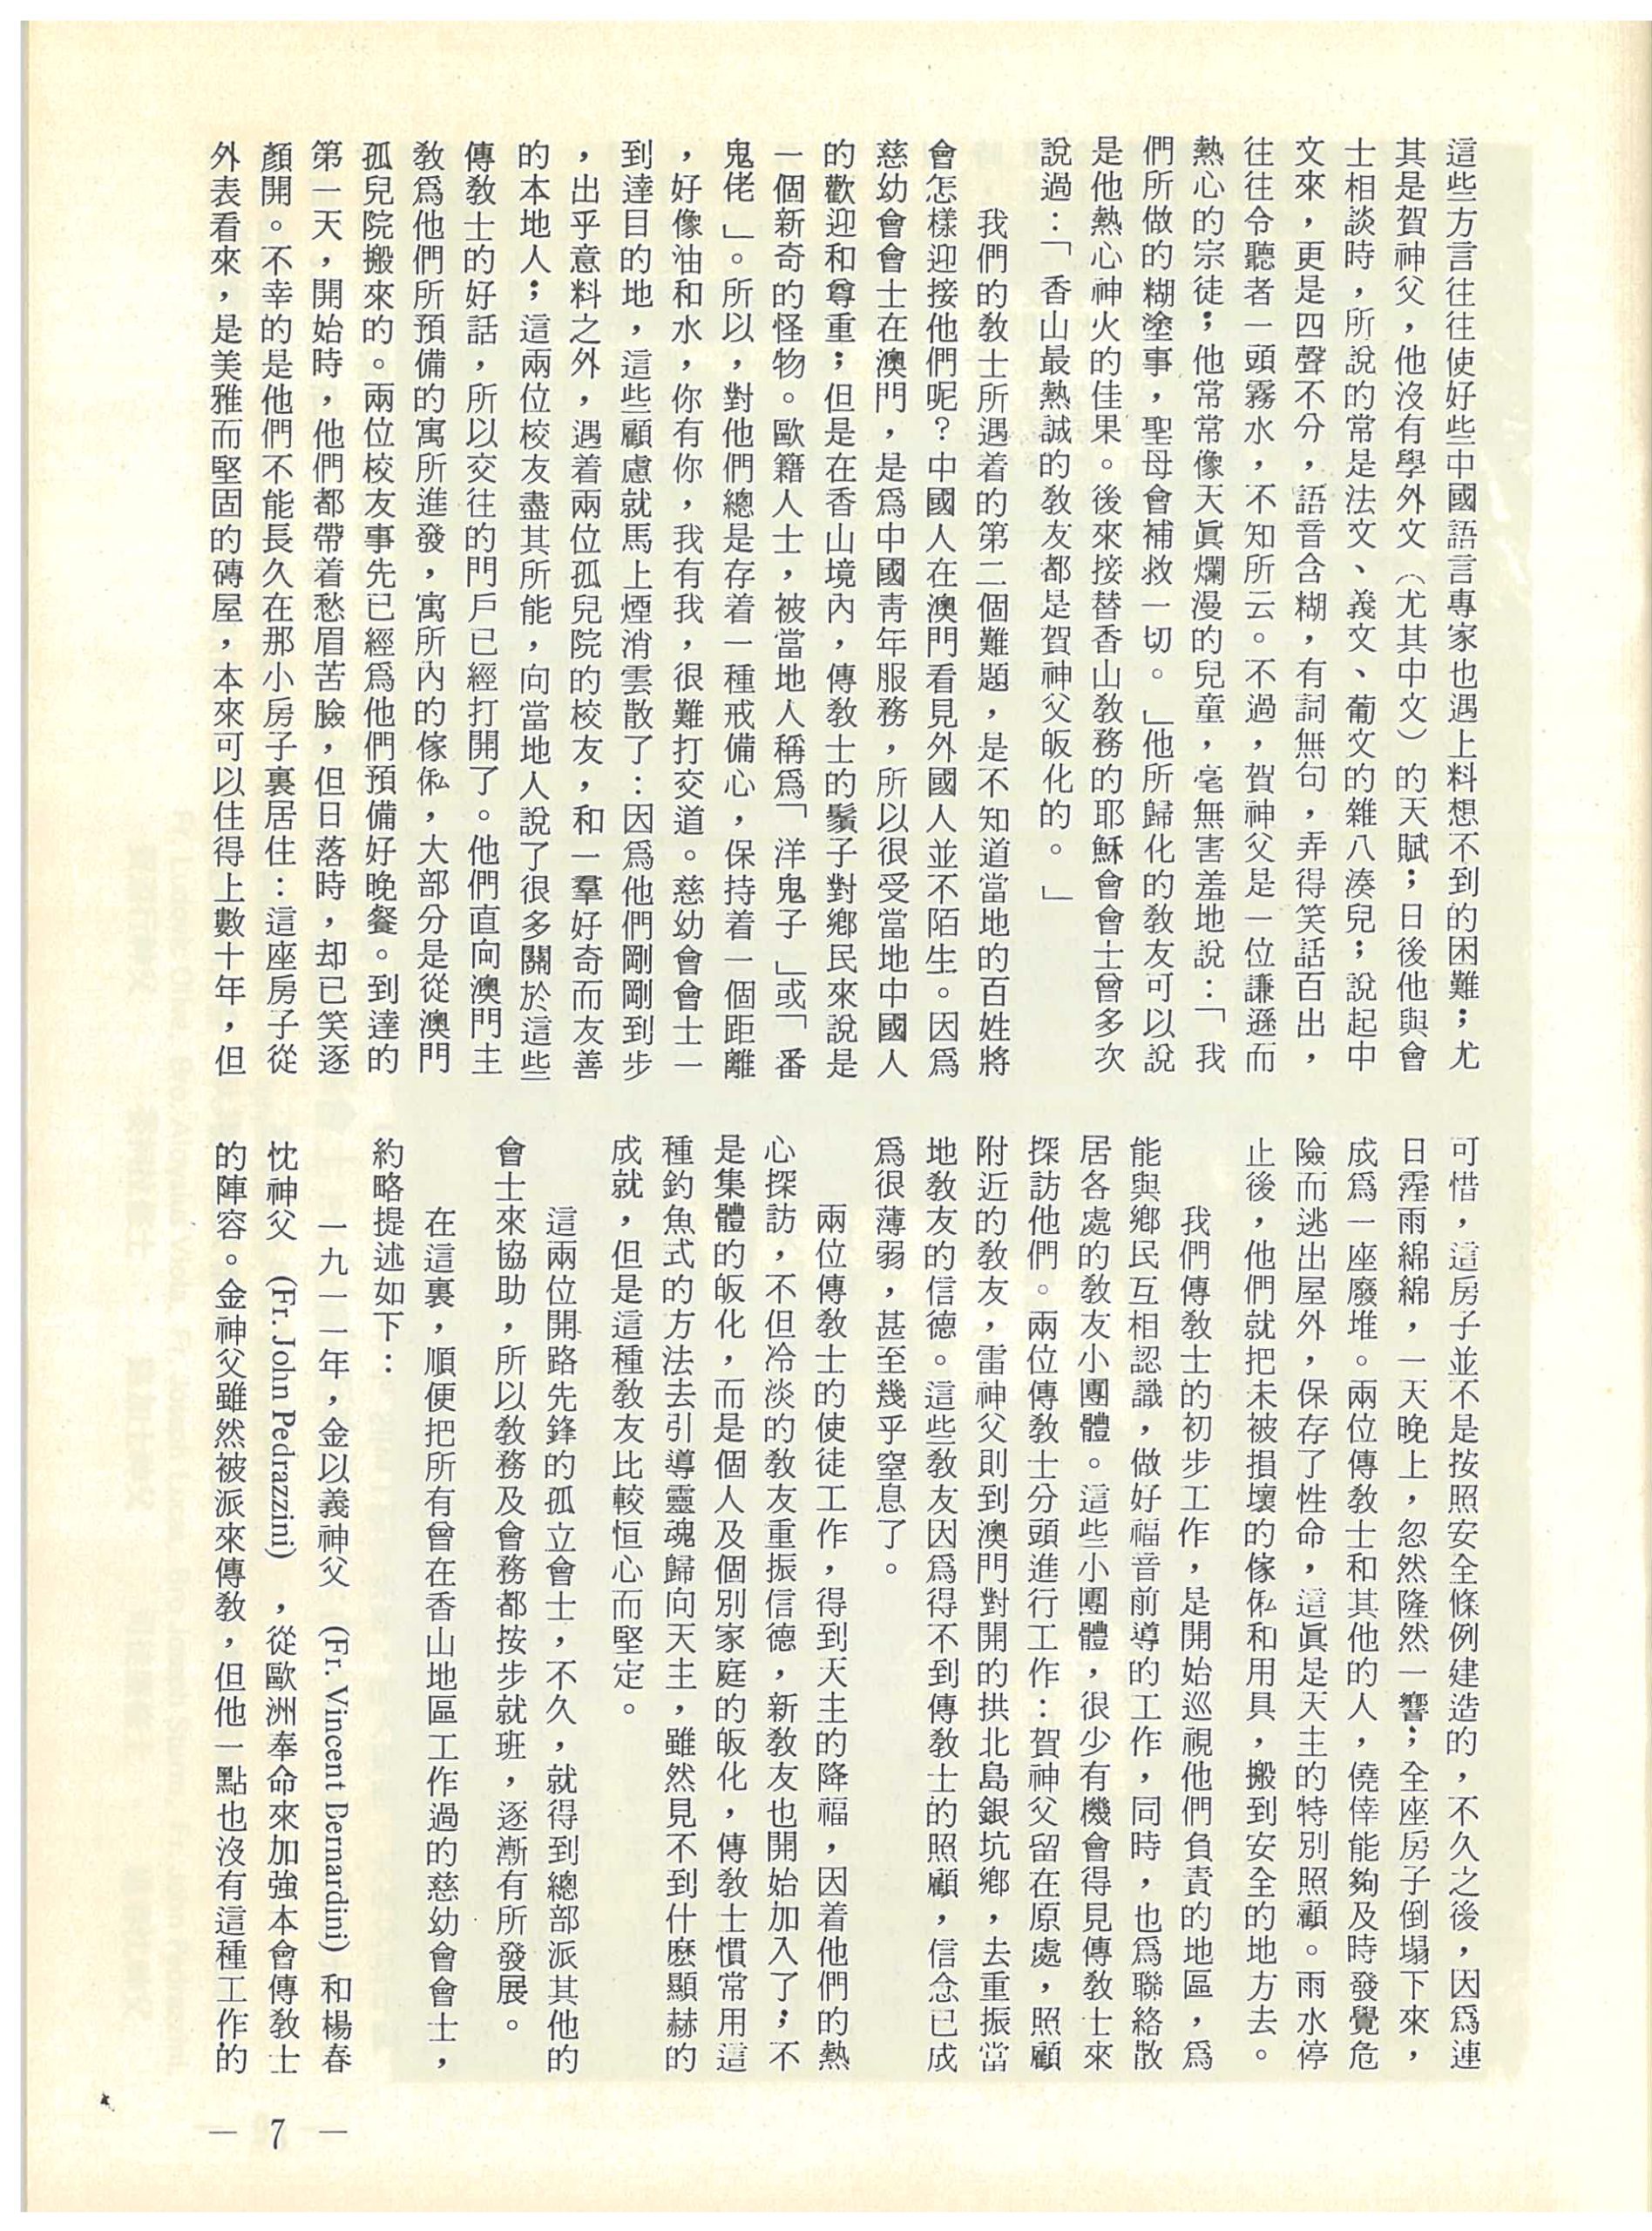 這些方言往往使好些中國語言專家也遇上料想不到的困難；尤
其是賀神父，他沒有學外文（尤其中文）的天賦；日後他與會
士相談時，所說的常是法文、義文、葡文的雜八湊兒；說起中
文來，更是四聲不分，語音含糊，有詞無句，弄得笑話百出，
往往令聽者一頭霧水，不知所云。不過，賀神父是一位謙遜而
熱心的宗徒；他常常像天眞爛漫的兒童，毫無害羞地說：「我
們所做的糊塗事，聖母會補救一切。」他所歸化的教友可以說
是他熱心神火的佳果。後來接替香山教務的耶穌會會士曾多次
說過：「香山最熱誠的教友都是賀神父皈化的。」
我們的教士所遇着的第二個難題，是不知道當地的百姓將
會怎樣迎接他們呢？中國人在澳門看見外國人並不陌生。因爲
慈幼會會士在澳門，是爲中國靑年服務，所以很受當地中國人
的歡迎和尊重；但是在香山境內，傳教士的鬚子對鄉民來說是
一個新奇的怪物。歐籍人士，被當地人稱爲「洋鬼子」或「番
鬼佬」。所以，對他們總是存着一種戒備心，保持着一個距離
，好像油和水，你有你，我有我，很難打交道。慈幼會會士一
到達目的地，這些顧慮就馬上煙消雲散了：因爲他們剛剛到步
，出乎意料之外，遇着兩位孤兒院的校友，和一羣好奇而友善
的本地人；這兩位校友盡其所能，向當地人說了很多關於這些
傳教士的好話，所以交往的門戶已經打開了。他們直向澳門主
教爲他們所預備的寓所進發，寓所內的傢俬，大部分是從澳門
孤兒院搬來的。兩位校友事先已經爲他們預備好晚餐。到達的
第一天，開始時，他們都帶着愁眉苦臉，但日落時，却已笑逐
顏開。不幸的是他們不能長久在那小房子裏居住：這座房子從
外表看來，是美雅而堅固的磚屋，本來可以住得上數十年，但
可惜，這房子並不是按照安全條例建造的，不久之後，因爲連
日霪雨綿綿，一天晚上，忽然隆然一響；全座房子倒塌下來，
成爲一座廢堆。兩位傳教士和其他的人，僥倖能夠及時發覺危
險而逃出屋外，保存了性命，這眞是天主的特別照顧。雨水停
止後，他們就把未被損壞的傢俬和用具，搬到安全的地方去。
我們傳教士的初步工作，是開始巡視他們負責的地區，爲
能與鄉民互相認識，做好福音前導的工作，同時，也爲聯絡散
居各處的教友小團體。這些小團體，很少有機會得見傳教士來
探訪他們。兩位傳教士分頭進行工作：賀神父留在原處，照顧
附近的教友，雷神父則到澳門對開的拱北島銀坑鄉，去重振當
地教友的信德。這些教友因爲得不到傳教士的照顧，信念已成
爲很薄弱，甚至幾乎窒息了。
兩位傳教士的使徒工作，得到天主的降福，因着他們的熱
心探訪，不但冷淡的教友重振信德，新教友也開始加入了；不
是集體的皈化，而是個人及個別家庭的皈化，傳教士慣常用這
種釣魚式的方法去引導靈魂歸向天主，雖然見不到什麼顯赫的
成就，但是這種教友比較恒心而堅定。
這兩位開路先鋒的孤立會士，不久，就得到總部派其他的
會士來協助，所以教務及會務都按步就班，逐漸有所發展。
在這裏，順便把所有曾在香山地區工作過的慈幼會會士，
約略提述如下：
一九一一年，金以義神父 (Fr. Vincent Bernardini) 和楊春
忱神父 (Fr. John Pedrazzini) ，從歐洲奉命來加強本會傳教士
的陣容。金神父雖然被派來傳教，但他一點也沒有這種工作的
— 7 —